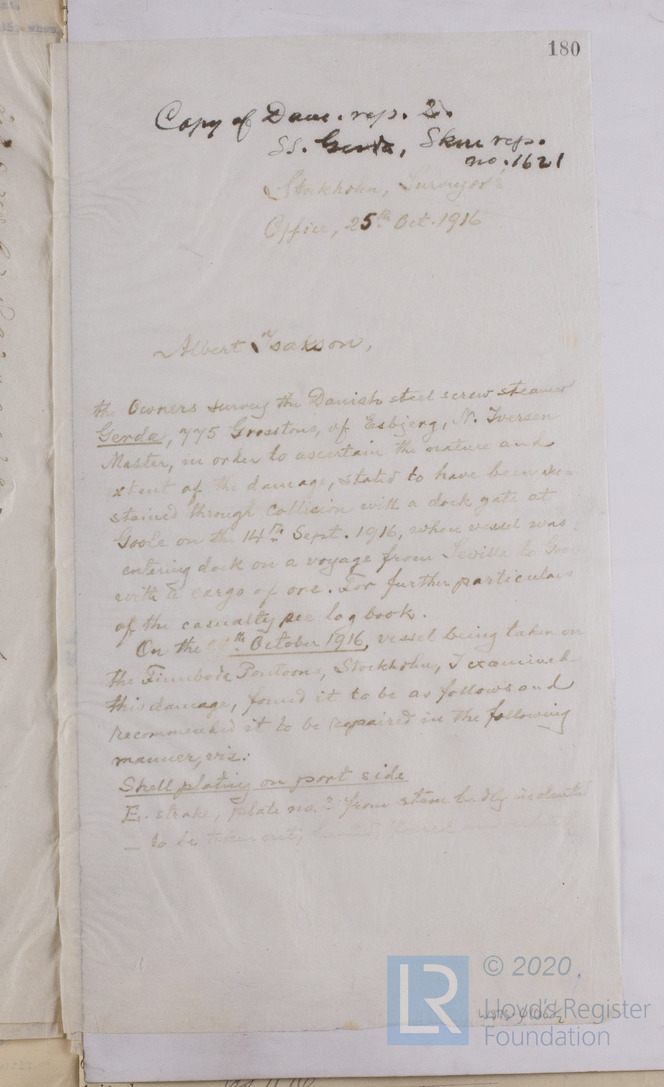 180
Copy of Dam. rep. 2.
SS. Gerda, Skm rep.
no. 1621
Stockholm, Surveyor's
Office, 25th Oct. 1916
Albert Isakson,
the Owners survey the Danish steel screw steamer
Gerda, 775 Grosstons, of Esbjerg, N. Iversen
Master, in order to ascertain the nature and
extent of the damage, stated to have been su-
stained through collision with a dock gate at
Goole on the 14th Sept. 1916, when vessel was
entering dock on a voyage from Seville to
with a cargo of ore. For further particulars
of the casualty see log book.
On the October 1916, vessel being taken on
the Finnboda Pontoons, Stockholm, I examined
this damage, found it to be as follows and
recommended it to be repaired in the following
manner, viz:
Shell plating on port side
E. strake, plate no. 2 from stem badly indented
— to be taken out,
© 2020
LR
Lloyd's Register
Foundation